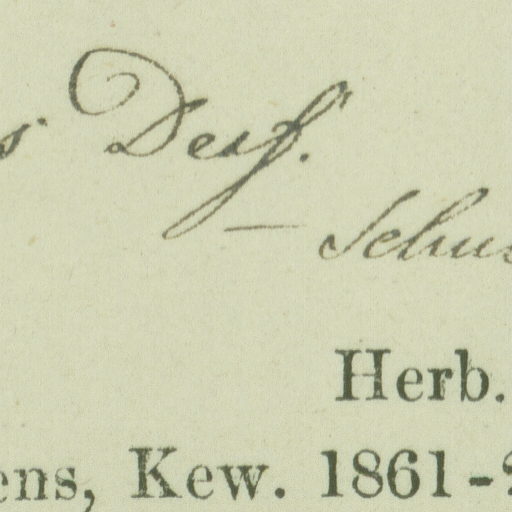 s Desf.
Schus
Herb.
ens, Kew. 1861-